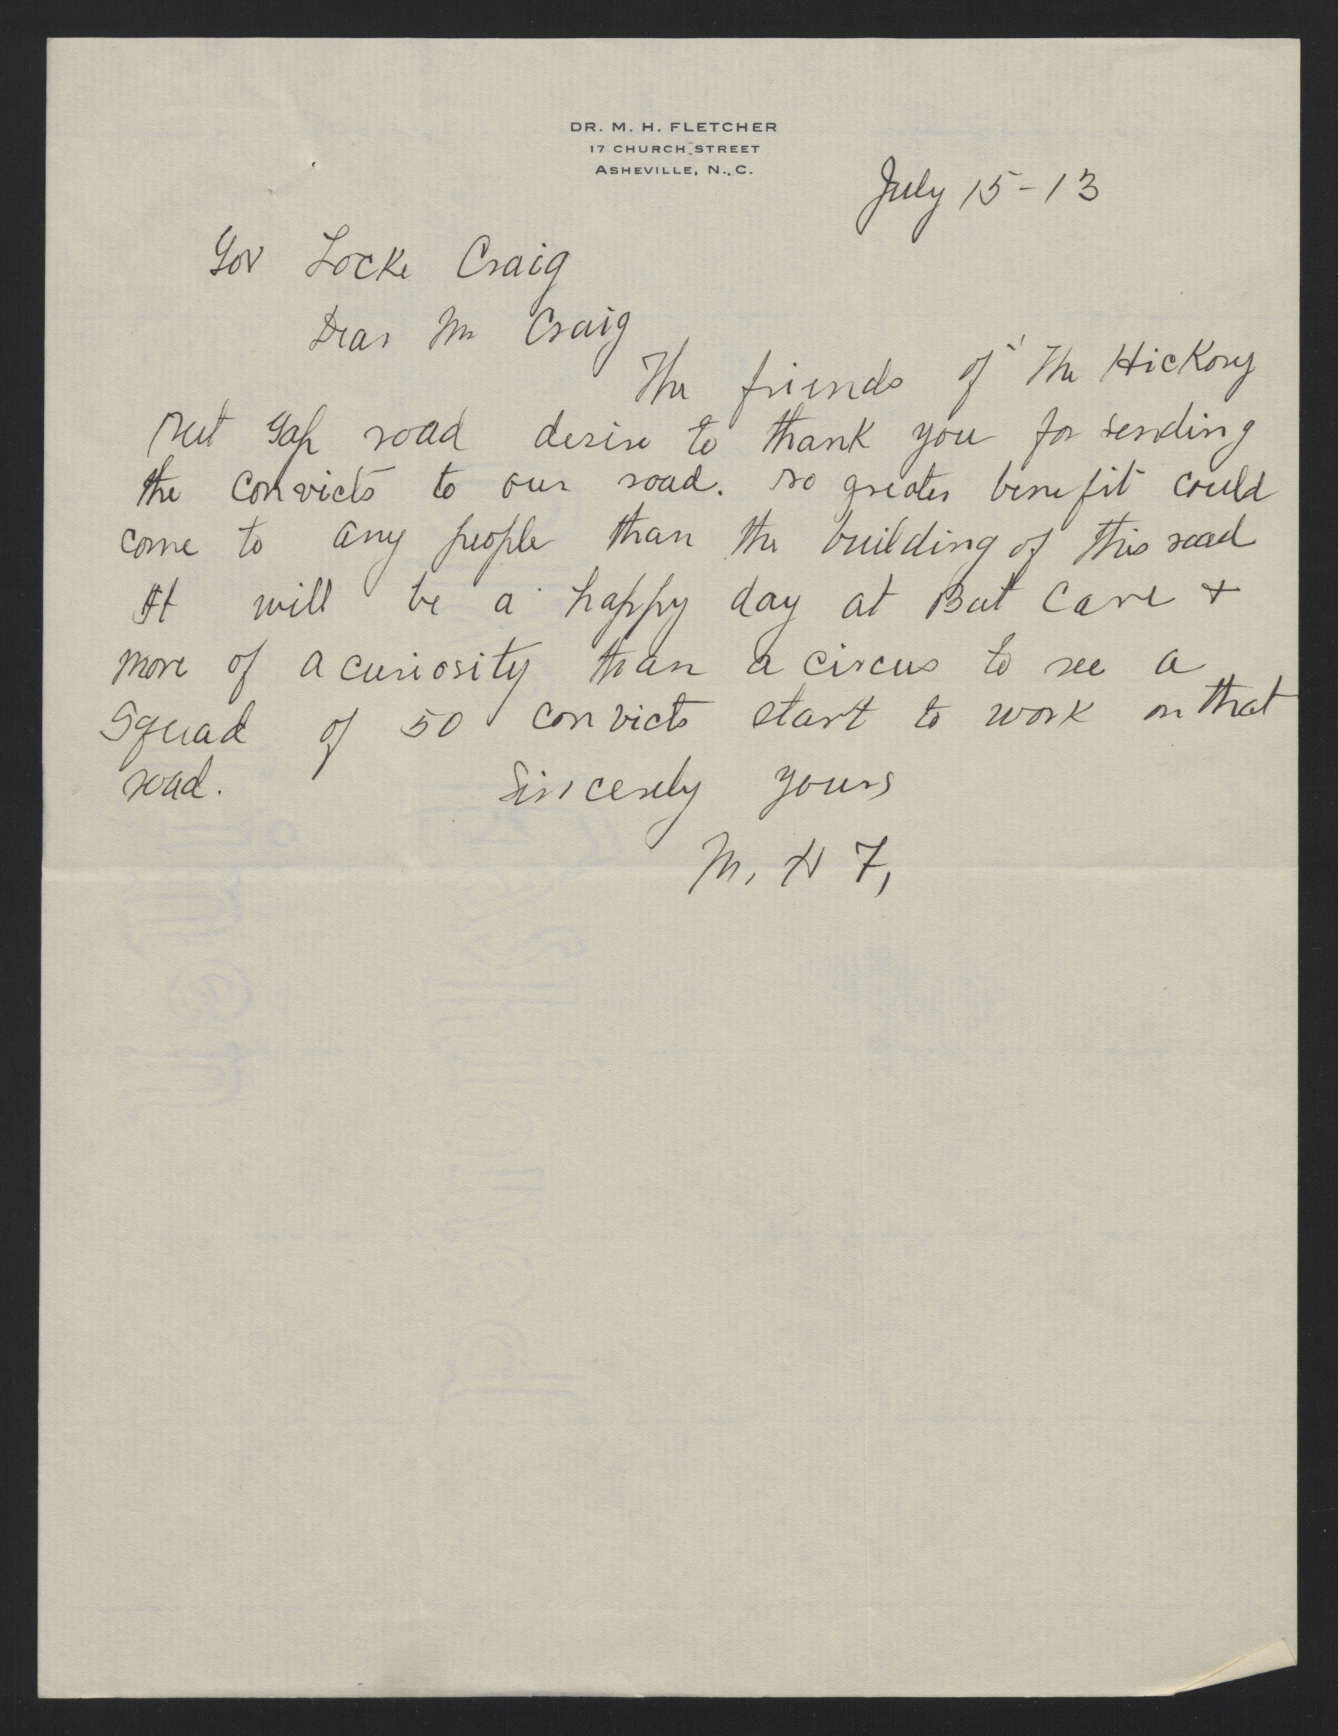 DR. M. H. FLETCHER
17 CHURCH STREET
ASHEVILLE, N. C.
July 15-13
Gov Locke Craig
Dear Mr Craig
The friends of The Hickory
Nut Gap road desire to thank you for sending
the convicts to our road. No greater benefit could
come to any people than the building of this road
It will be a happy day at Bat Cave +
more of a curiosity than a circus to see a
Squad of 50 convicts start to work on that
road.
Sincerely yours
M. H F,